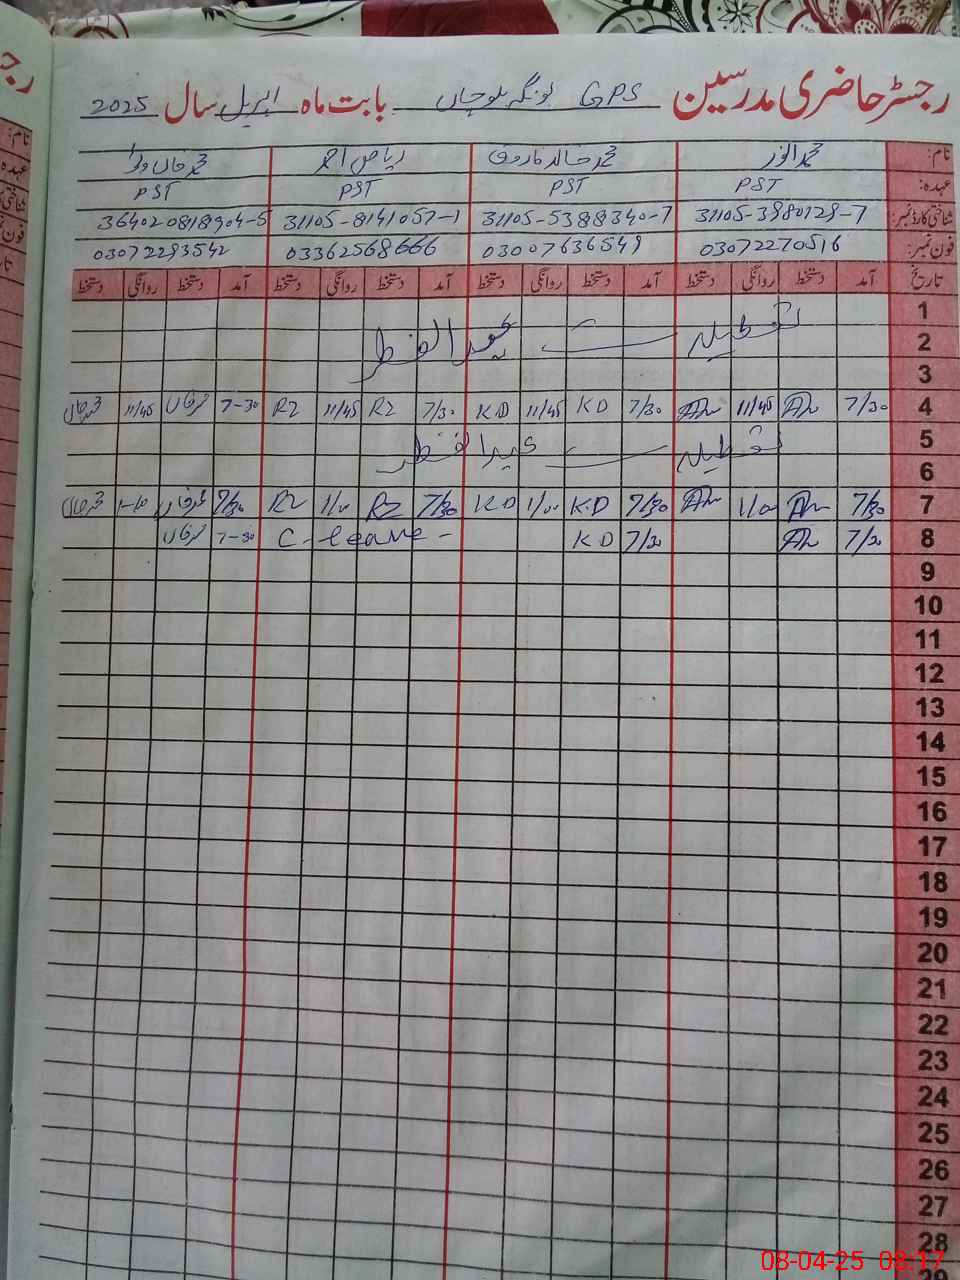 رجسٹر حاضری مدرسین GPS ٹونگر بلوچاں بابت ماہ اپریل سال 2025
نام: محمد انور محمد خالد فاروق ریاض احمد محمد خاں
عہدہ: PST PST PST PST
شناختی کارڈ نمبر: 31105-3980129-7 31105-5388340-7 31105-8141057-1 364020818904-5
فون نمبر: 03072270516 03007636549 03362568666 03072293542
تاریخ آمد دستخط روانگی دستخط آمد دستخط روانگی دستخط آمد دستخط روانگی دستخط آمد دستخط روانگی دستخط
1
2 تعطیل عید الفطر
3
4 7/30 11/45 7/30 KD 11/45 KD 7/30 RZ 11/45 RZ 7-30 11/45
5 تعطیل عید الفطر
6
7 7/30 1/00 7/30 KD 1/00 KD 7/30 RZ 1/00 RZ 7/30
8 7/30 7/30 KD C-leave- 7-30
9
10
11
12
13
14
15
16
17
18
19
20
21
22
23
24
25
26
27
28
29
08-04-25 08:17